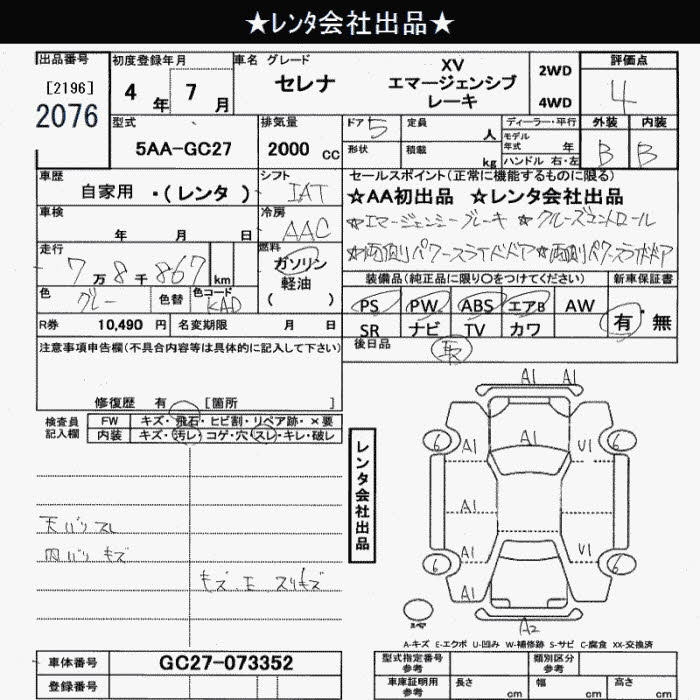 ★レンタ会社出品★
出品番号
[2196]
2076
初度登録年月
4年7月
車名 グレード
セレナ
XV
エマージェンシブ
レーキ
2WD
4WD
評価点
4
型式
5AA-GC27
排気量
2000 cc
ドア 5
定員 人
形状
積載 kg
ディーラー・平行
モデル年式 年
ハンドル 右・左
外装 内装
B B
車歴
自家用 ・(レンタ )
シフト
IAT
セールスポイント(正常に機能するものに限る)
☆AA初出品 ☆レンタ会社出品
☆エマージェンシーブレーキ ☆クルーズコントロール
☆両側パワースライドドア☆両側パワースライドドア
車検
年 月 日
冷房
AAC
走行
7万8千867km
燃料
ガソリン
軽油
( )
色
グレー
色替
色コード
KAD
装備品(純正品に限り○をつけてください) 新車保証書
PS PW ABS エアB AW 有・無
SR ナビ TV カワ
R券 10,490 円 名変期限 月 日
後日品
取
注意事項申告欄(不具合内容等は具体的に記入して下さい)
修復歴 有 [箇所 ]
検査員
記入欄
FW キズ・飛石・ヒビ割・リペア跡・×要
内装 キズ・汚レ・コゲ・穴・スレ・キレ・破レ
天バリ スレ
内バリ キズ
キズ、エ スリキズ
レンタ会社出品
A1 A1
6 A1 A1 U1 6
A1
6 A1 U1 6
A1
スペア
A2
A-キズ E-エクボ U-凹み W-補修跡 S-サビ C-腐食 XX-交換済
車体番号 GC27-073352
登録番号
型式指定番号
参考
類別区分
参考
車庫証明用
参考
長さ cm
幅 cm
高さ cm